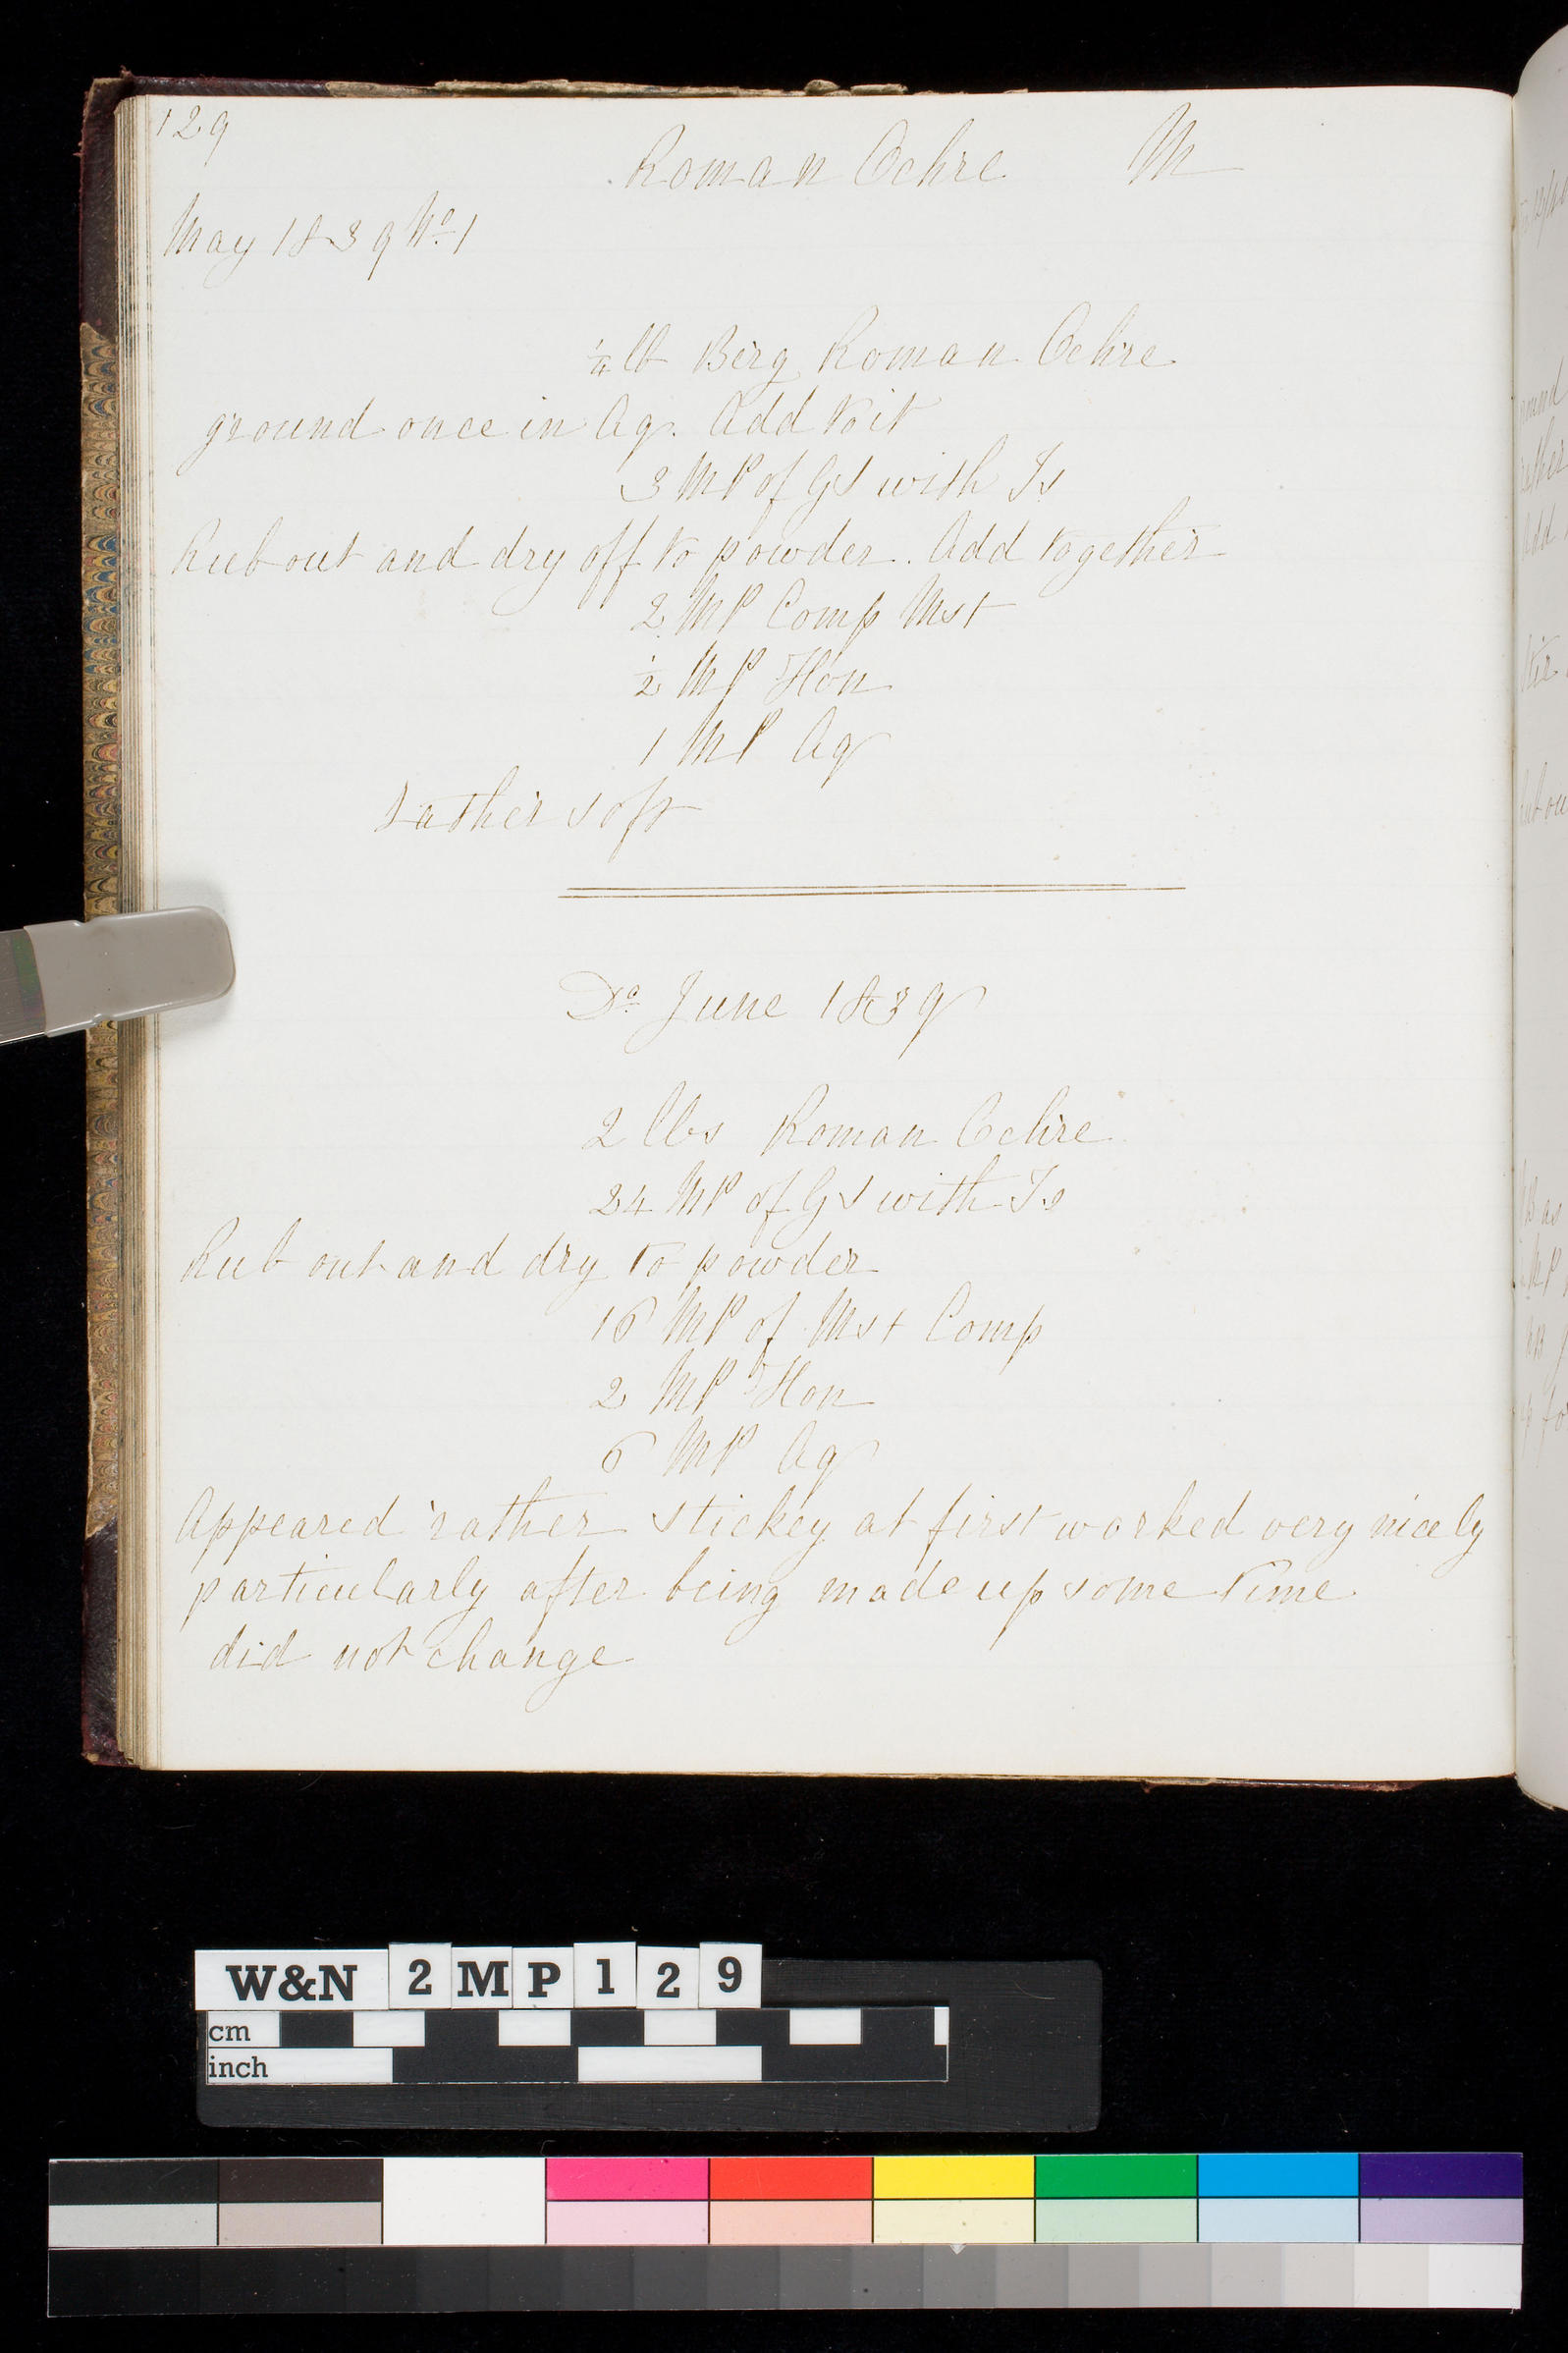 129
Roman Ochre M
May 1839 No. 1
1/4 lb Berg Roman Ochre
ground once in Aq. Add to it
3 MP of GS with Is
Rub out and dry off to powder. Add together
2 MP Comp Mst
1/2 MP Hon
1 MP Aq
rather soft
Do June 1839
2 lbs Roman Ochre
24 MP of GS with Is
Rub out and dry to powder
16 MP of Mst Comp
2 MP Hon
6 MP Aq
Appeared rather stickey at first worked very nicely
particularly after being made up some time
did not change
W&N 2MP129
cm
inch